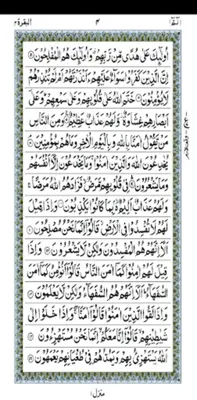 الٓمّٓ ١ ٣ البقرة ٢
اُولٰٓئِكَ عَلٰى هُدًى مِّنْ رَّبِّهِمْ وَاُولٰٓئِكَ هُمُ الْمُفْلِحُوْنَ ۝
اِنَّ الَّذِيْنَ كَفَرُوْا سَوَآءٌ عَلَيْهِمْ ءَاَنْذَرْتَهُمْ اَمْ لَمْ تُنْذِرْهُمْ
لَا يُؤْمِنُوْنَ ۝ خَتَمَ اللّٰهُ عَلٰى قُلُوْبِهِمْ وَعَلٰى سَمْعِهِمْ وَعَلٰٓى
اَبْصَارِهِمْ غِشَاوَةٌ وَّلَهُمْ عَذَابٌ عَظِيْمٌ ۝ وَمِنَ النَّاسِ
مَنْ يَّقُوْلُ اٰمَنَّا بِاللّٰهِ وَبِالْيَوْمِ الْاٰخِرِ وَمَا هُمْ بِمُؤْمِنِيْنَ ۝
يُخٰدِعُوْنَ اللّٰهَ وَالَّذِيْنَ اٰمَنُوْا وَمَا يَخْدَعُوْنَ اِلَّآ اَنْفُسَهُمْ
وَمَا يَشْعُرُوْنَ ۝ فِيْ قُلُوْبِهِمْ مَّرَضٌ فَزَادَهُمُ اللّٰهُ مَرَضًا
وَلَهُمْ عَذَابٌ اَلِيْمٌۢ بِمَا كَانُوْا يَكْذِبُوْنَ ۝ وَاِذَا قِيْلَ
لَهُمْ لَا تُفْسِدُوْا فِى الْاَرْضِ قَالُوْٓا اِنَّمَا نَحْنُ مُصْلِحُوْنَ ۝
اَلَآ اِنَّهُمْ هُمُ الْمُفْسِدُوْنَ وَلٰكِنْ لَّا يَشْعُرُوْنَ ۝ وَاِذَا
قِيْلَ لَهُمْ اٰمِنُوْا كَمَآ اٰمَنَ النَّاسُ قَالُوْٓا اَنُؤْمِنُ كَمَآ اٰمَنَ
السُّفَهَآءُ اَلَآ اِنَّهُمْ هُمُ السُّفَهَآءُ وَلٰكِنْ لَّا يَعْلَمُوْنَ ۝
وَاِذَا لَقُوا الَّذِيْنَ اٰمَنُوْا قَالُوْٓا اٰمَنَّا وَاِذَا خَلَوْا اِلٰى
شَيٰطِيْنِهِمْ قَالُوْٓا اِنَّا مَعَكُمْ اِنَّمَا نَحْنُ مُسْتَهْزِءُوْنَ ۝
اَللّٰهُ يَسْتَهْزِئُ بِهِمْ وَيَمُدُّهُمْ فِيْ طُغْيَانِهِمْ يَعْمَهُوْنَ ۝
منزل ١